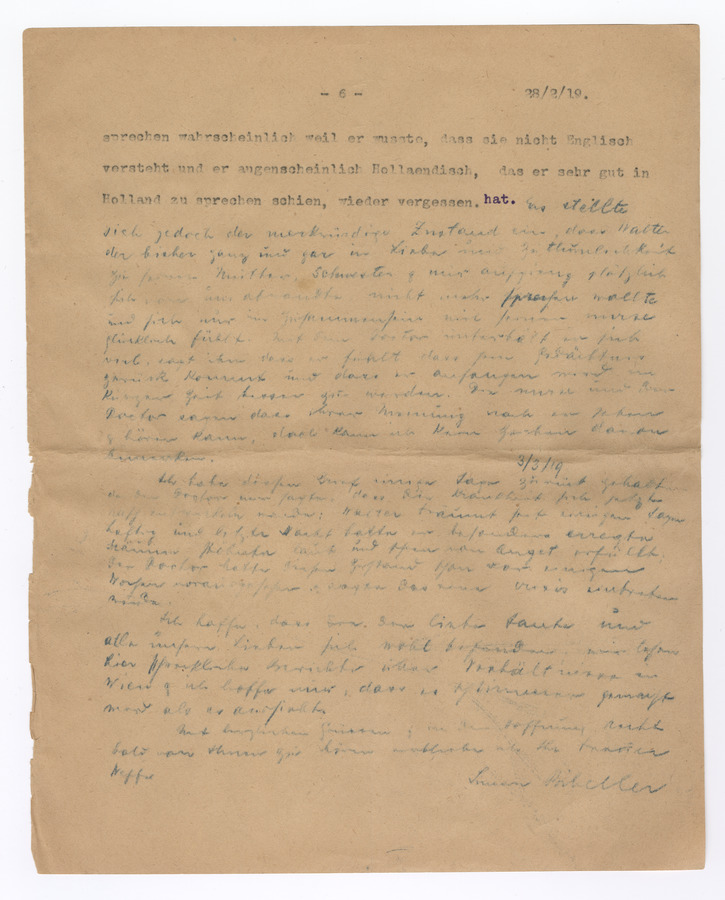 - 6 - 28/2/19.
sprechen wahrscheinlich weil er wusste, dass sie nicht Englisch
versteht und er augenscheinlich Hollaendisch, das er sehr gut in
Holland zu sprechen schien, wieder vergessen hat. Es stellte
sich jedoch der merkwürdige Zustand ein, dass Walter
der bisher ganz und gar in Liebe und
zu seiner Mutter, Schwester & mir aufgieng plötzlich
sich von uns abwandte nicht mehr sprechen wollte
und sich nur im Zusammensein mit seiner nurse
glücklich fühlt. Mit dem Doctor unterhält er sich
viel, sagt ihm dass er fühlt dass sein Gedächtnis
zurück kommt und dass er anfangen wird in
kurzer Zeit besser zu werden. Die nurse und der
Doctor sagen dass ihrer Meinung nach er sehen
& hören kann, doch kann ich kein Zeichen davon
bemerken.
3/3/19
Ich habe diesen Brief einige Tage zurück gehalten
da der Doctor mir sagte, dass die Krankheit sich jetzt
würde; Walter träumt seit einigen Tagen
heftig und letzte Nacht hatte er besonders erregte
Träume, laut und war von Angst erfüllt.
Der Doctor hatte diesen Zustand schon vor einigen
Wochen & sagte dass eine crisis eintreten
würde.
Ich hoffe, dass Sie, der liebe Tante und
alle unsere Lieben sich wohl befinden, wir lesen
hier schreckliche Berichte über Verhältnisse in
Wien & ich hoffe nur, dass es schlimmer gemacht
wird als es aussieht.
Mit herzlichen Grüssen & in der Hoffnung recht
bald von Ihnen zu hören verbleibe ich Ihr treuer
Neffe